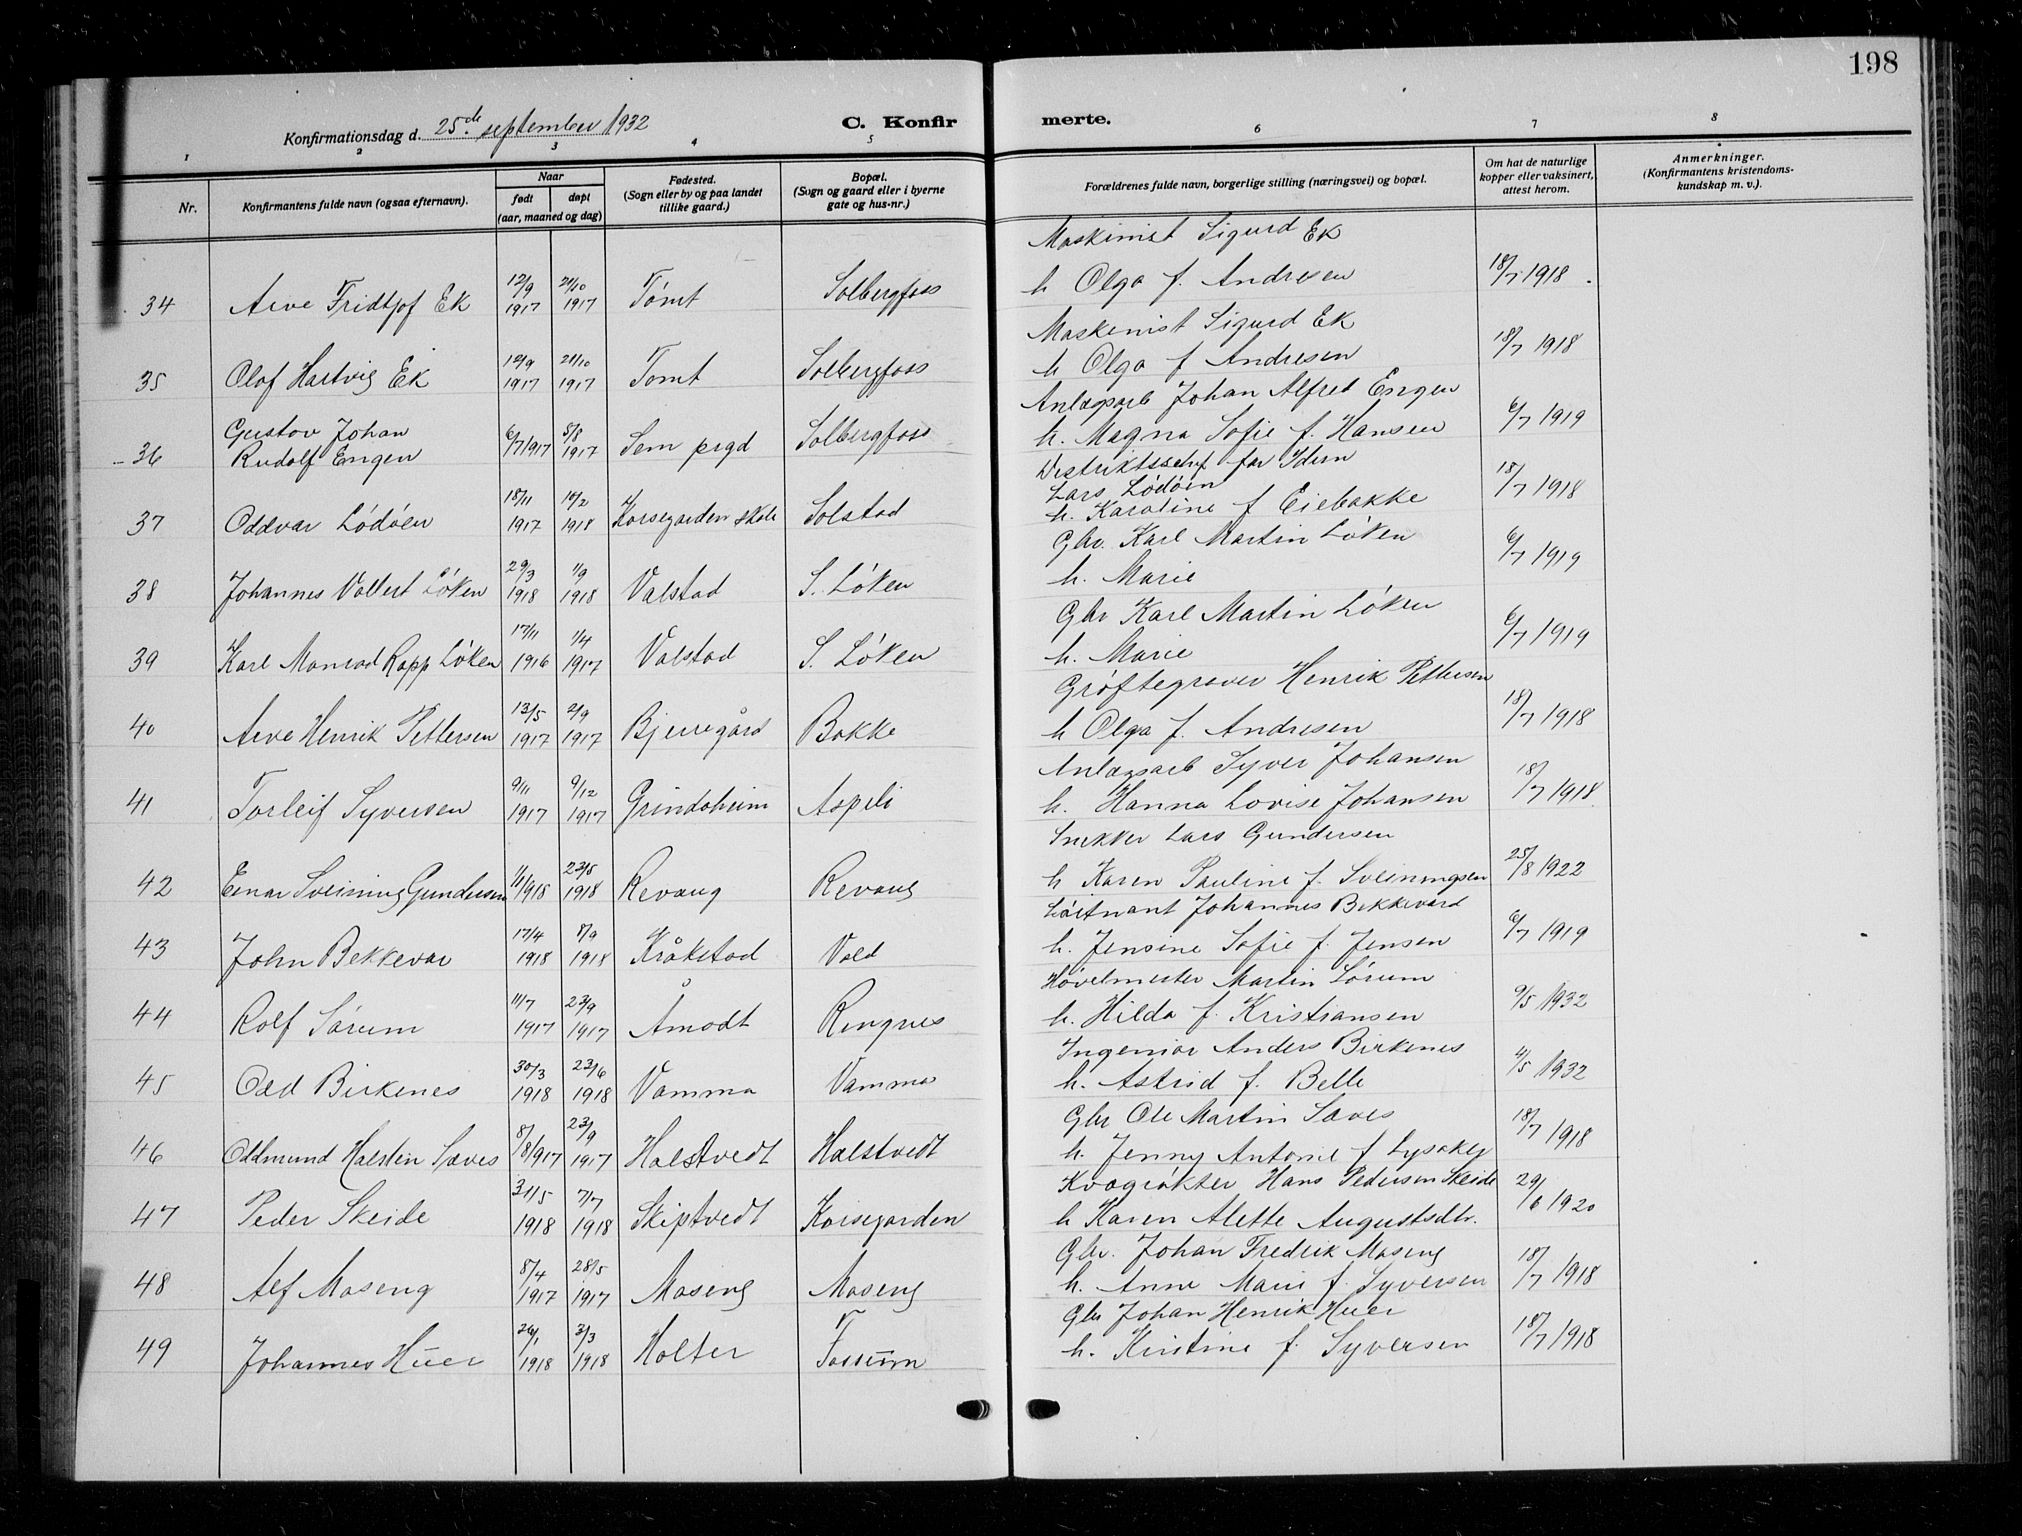 198
Konfirmationsdag d. 25de september 1932
C. Konfir
merte.
1 2 3 4 5 6 7 8
Nr.
Konfirmantens fulde navn (ogsaa efternavn).
Naar
født
døpt
(aar, maaned og dag)
Fødested.
(Sogn eller by og paa landet
tillike gaard.)
Bopæl.
(Sogn og gaard eller i byerne
gate og hus-nr.)
Forældrenes fulde navn, borgerlige stilling (næringsvei) og bopæl.
Om hat de naturlige
kopper eller vaksinert,
attest herom.
Anmerkninger.
(Konfirmantens kristendoms-
kundskap m. v.).
Maskinist Sigurd Ek
34 Arve Fridtjof Ek 12/9 1917 21/10 1917 Tomt Solbergfoss h Olga f. Andresen 18/7 1918
Maskinist Sigurd Ek
35 Olof Hartvig Ek 12/9 1917 21/10 1917 Tomt Solbergfoss h Olga f Andresen 18/7 1918
Anlægsarb Johan Alfred Engen
36 Gustav Johan
Rudolf Engen 6/7 1917 5/8 1917 Sem prgd Solbergfoss h. Magna Sofie f. Hansen 6/7 1919
Distriktschef for Idun
Lars Lødøen
37 Oddvar Lødøen 18/11 1917 10/2 1918 Korsegarden skole Solstad h. Karoline f Eiebakke 18/7 1918
Gbr. Karl Martin Løken
38 Johannes Volbert Løken 29/3 1918 1/9 1918 Valstad S. Løken h. Marie 6/7 1919
Gbr Karl Martin Løken
39 Karl Monrad Rapp Løken 17/11 1916 1/4 1917 Valstad S. Løken h. Marie 6/7 1919
Grøftegraver Henrik Pettersen
40 Arve Henrik Pettersen 13/5 1917 2/9 1917 Bjerregård Bakke h Olga f. Andresen 18/7 1918
Anlægsarb Syver Johansen
41 Torleif Syversen 9/11 1917 9/12 1917 Grindsheim Aspeli h. Hanna Lovise Johansen 18/7 1918
Snekker Lars Gundersen
42 Einar Sveining Gundersen 1/1 1918 23/5 1918 Revaug Revaug h Karen Pauline f. Sveiningsen 25/8 1922
Løitnant Johannes Bekkevard
43 John Bekkevar 17/4 1918 8/9 1918 Kråkstad Vold h. Jensine Sofie f. Jensen 6/7 1919
Høvelmester Martin Sørum
44 Rolf Sørum 11/7 1917 23/9 1917 Åmodt Ringnes h. Hilda f. Kristiansen 9/5 1932
Ingeniør Anders Birkenes
45 Odd Birkenes 30/3 1918 23/6 1918 Vamma Vamma h. Astrid f. Belle 4/5 1932
Gbr Ole Martin Sæves
46 Oddmund Halstein Sæves 8/8 1917 23/9 1917 Halstvedt Halstvedt h. Jenny Antonie f Lysaker 18/7 1918
Kvægrøkter Hans Pedersen Skeide
47 Peder Skeide 31/5 1918 7/7 1918 Skiptvedt Korsegarden h Karen Alette Augustsdtr. 29/6 1920
Gbr. Johan Fredrik Moseng
48 Alf Moseng 8/4 1917 28/5 1917 Moseng Moseng h. Anne Marie f. Syversen 18/7 1918
Gbr Johan Henrik Huer
49 Johannes Huer 26/1 1918 3/3 1918 Holter Fossum h. Kristine f. Syversen 18/7 1918